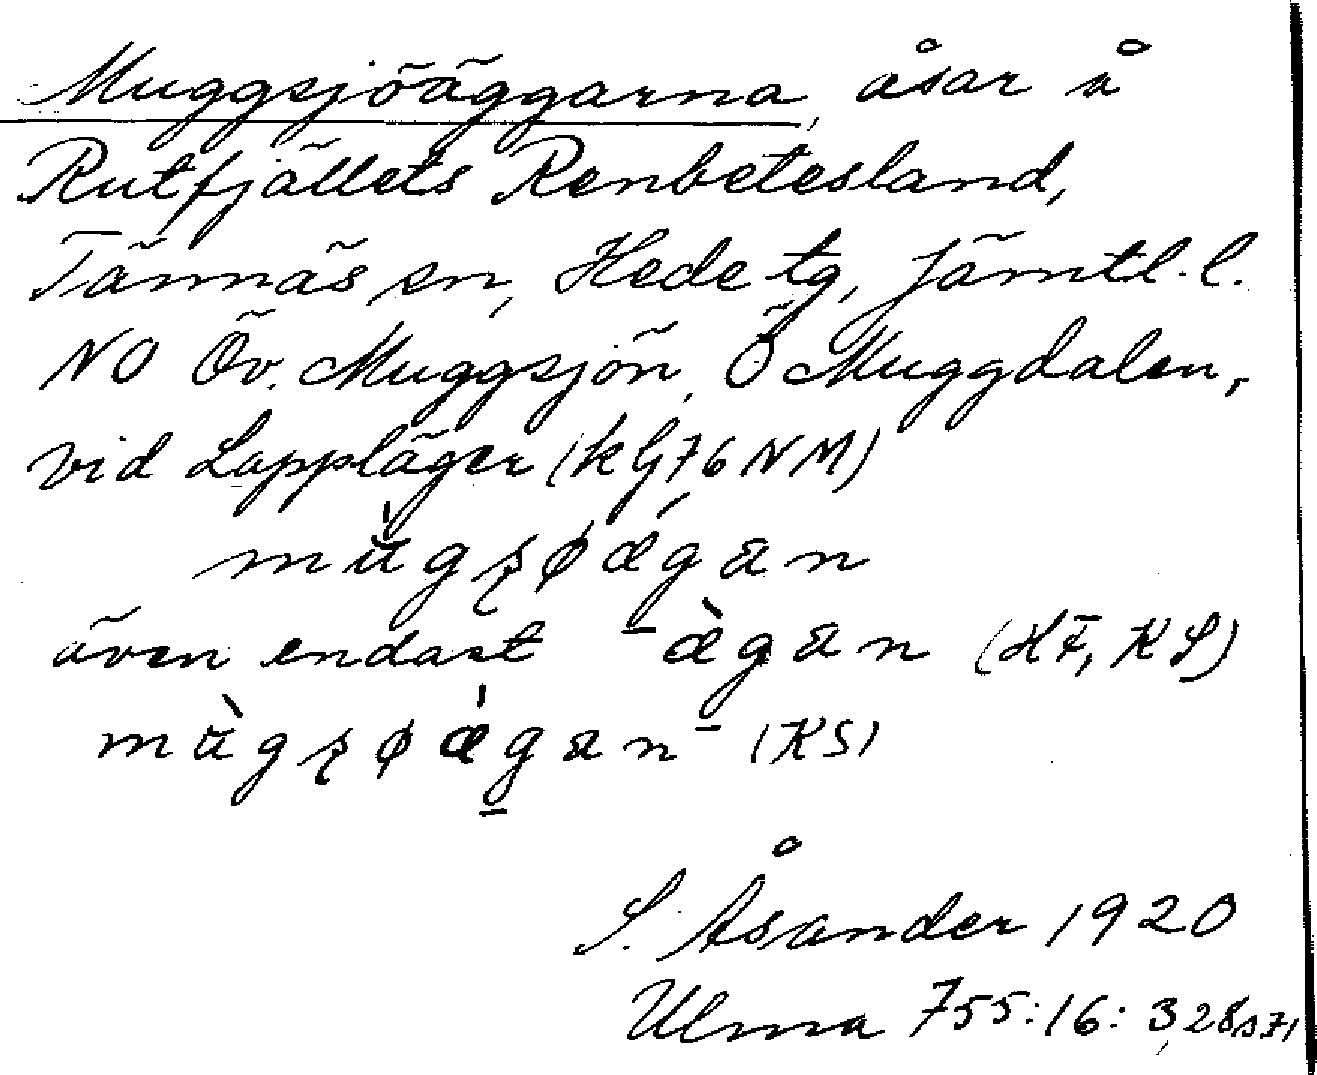 Muggsjöäggarna, åsar å
Rutfjällets Renbetesland,
Tännäs sn, Hede tg, Jämtl. l.
NO Öv. Muggsjön, Ö Muggdalen,
vid Lappläger (kG76NM)
även endast (KS)
(KS)
S. Åsander 1920
Ulma 755:16: 3,28s71